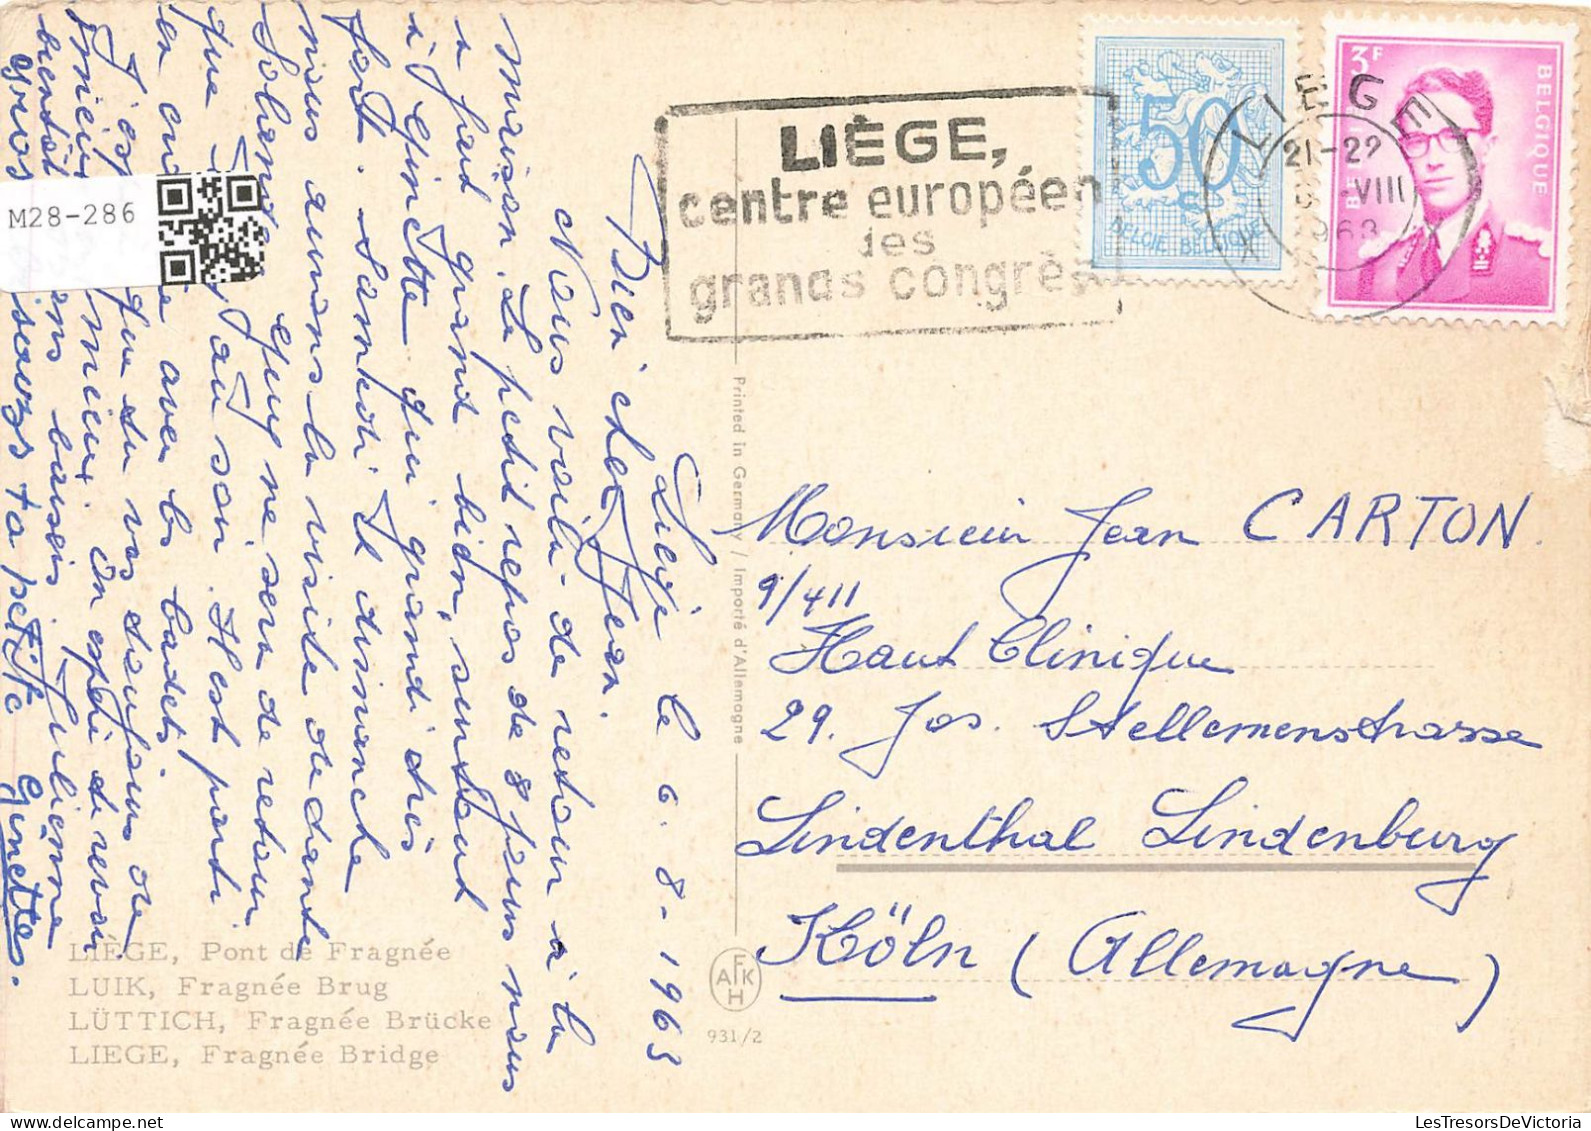 Liège le 6.8-1963
Bien cher Jean.
Nous voilà de retour à la
maison. Le petit repos de 8 jours nous
a fait grand bien, surtout
à Ginette qui grandi très
fort. Samedi et dimanche
nous aurons la visite de tante
Guy ne sera de retour
que au soir. Il est parti
en avec les cadets
J'espère que tu vas toujours de
mieux en mieux. On espère te revoir
bientôt. bons baisers. Julienne
gros ta petite Ginette.
LIÈGE,
centre européen
des
grands congrès
50
BELGIE BELGIQUE
3F
BELGIQUE
LIEGE
21-22
VIII
1963
Monsieur Jean CARTON.
9/411
Haut Clinique
29. Jos. Stellemenstrasse
Lindenthal Lindenburg
Köln (Allemagne)
Printed in Germany / Importé d'Allemagne
AFKH
931/2
LIÈGE, Pont de Fragnée
LUIK, Fragnée Brug
LÜTTICH, Fragnée Brücke
LIEGE, Fragnée Bridge
M28-286
LesTresorsDeVictoria